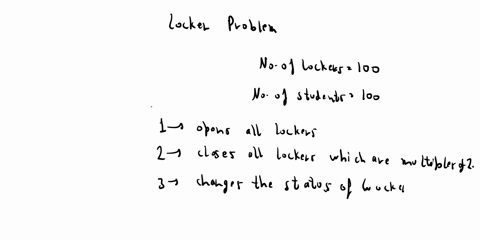 Locker Problem
No. of lockers = 100
No. of students = 100
1 → opens all lockers
2 → closes all lockers which are multiples of 2.
3 → changes the status of